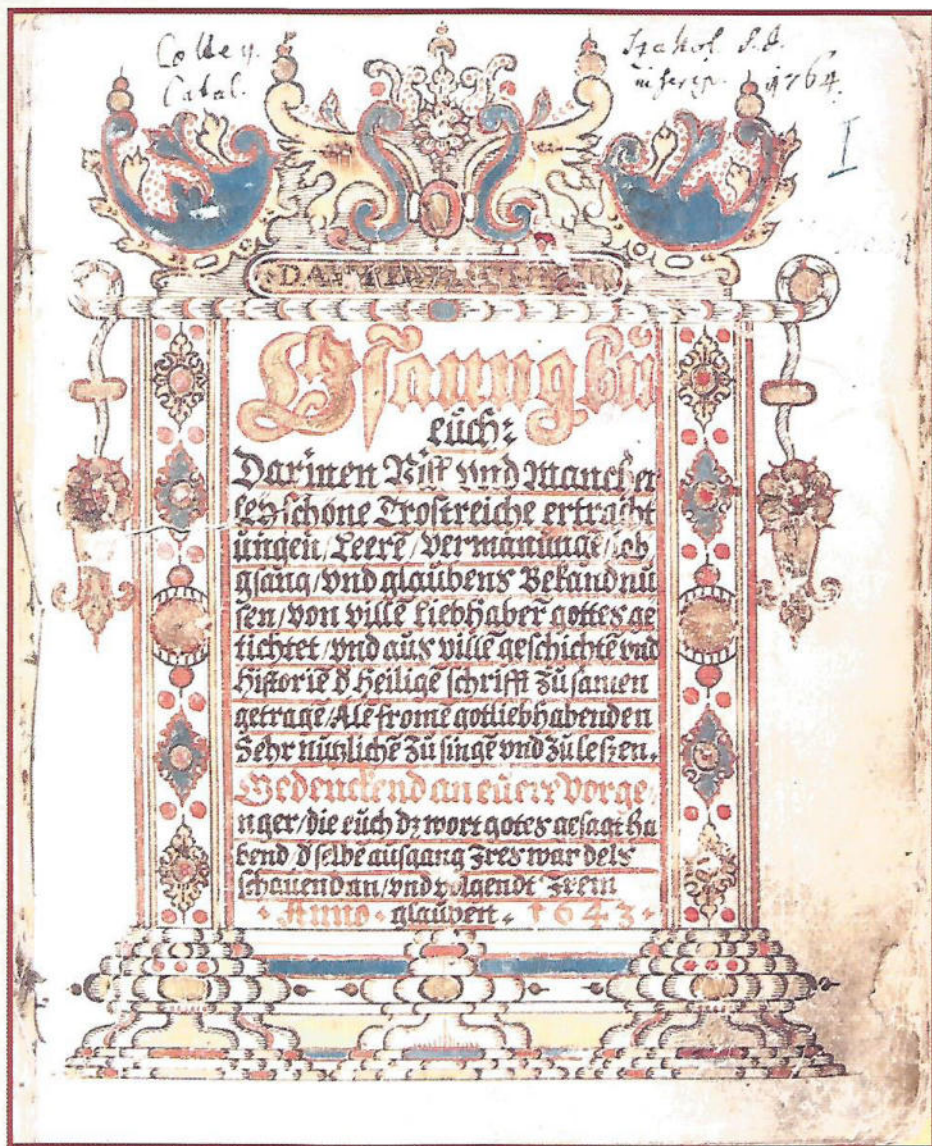 Colleg.
Catal.
S. J.
inscrip. 1764.
I
Gsanng bü
euch:
Darinen Vill vnd Mancher
leÿ schöne Trostreiche ertracht
ungen / Leerē / Vermanunge / lob
gsang / vnd glaubens Bekandnü
sen / von villē Liebhaber gottes ge
tichtet / vnd aus villē geschichtē vnd
Historiē d̄ Heiligē schrifft Zu samen
getragē / Alē fromē gotliebhabenden
Sehr nutzlichē Zu singē vnd Zu leszen.
Gedenckend an euere Vorge,
nger / die euch dz wort gotes gesagt ha
bend / d̄ selbe ausgang Jres war dels
schauend an / vnd volgendt Jrem
· Anno · glauben · 1643 ·